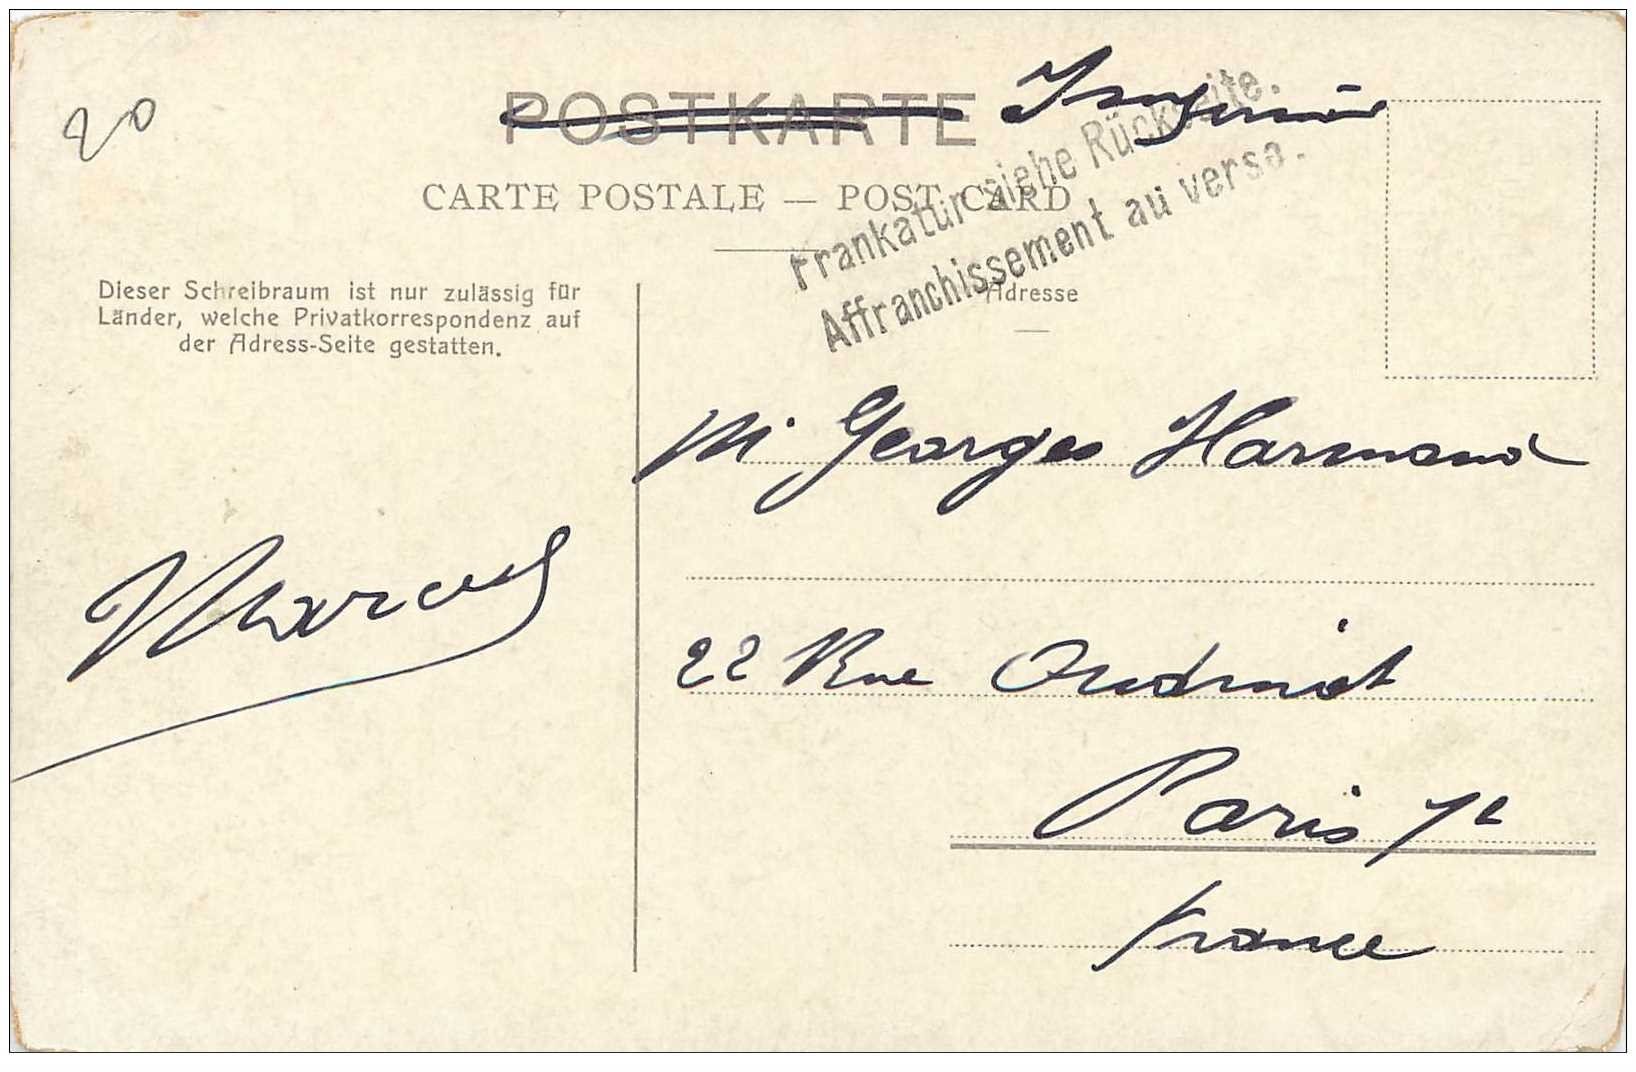 20
POSTKARTE
CARTE POSTALE — POST CARD
Frankatur siehe Rückseite.
Affranchissement au verso.
Dieser Schreibraum ist nur zulässig für
Länder, welche Privatkorrespondenz auf
der Adress-Seite gestatten.
Adresse
M Georges Harmand
Marcel
22 Rue Oudinot
Paris 7e
France